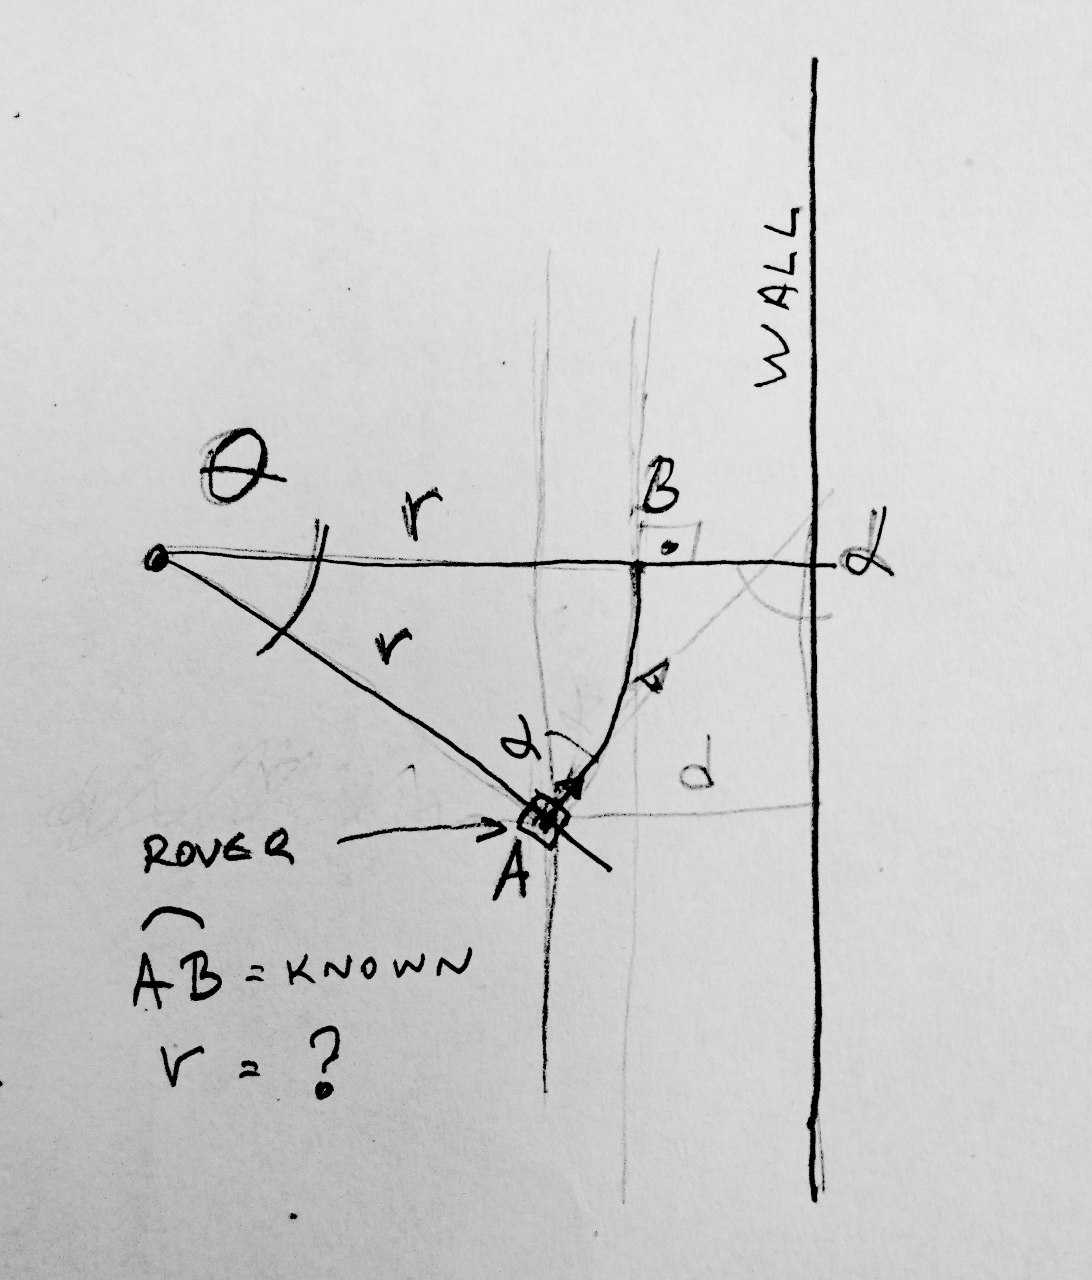 WALL
θ
r
B
α
r
α
d
ROVER
A
AB = KNOWN
r = ?